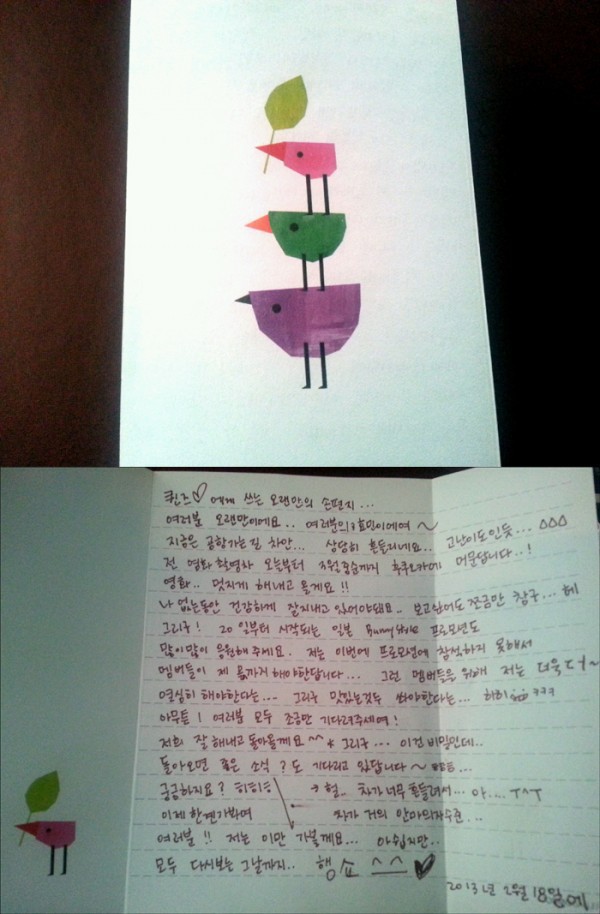 퀸즈♡ 에게 쓰는 오랜만의 손편지...
여러분 오랜만이에요.. 여러분의 효민이에여~
지금은 공항가는길 차안... 상당히 흔들리네요.. 고난이도인듯... ΔΔΔ
전 영화 촬영차 오늘부터 3월중순까지 후쿠오카에 머문답니다..!
영화.. 멋지게 해내고 올게요!!
나 없는동안 건강하게 잘지내고 있어야돼요.. 보고싶어도 쪼금만 참구... 헤
그리구! 20일부터 시작되는 일본 Bunny Style 프로모션도
많이많이 응원해주세요. 저는 이번에 프로모션에 참석하지 못해서
멤버들이 제 몫까지 해야한답니다... 그런 멤버들을 위해 저는 더욱 더~
열심히 해야한다는... 그리구 맛있는것두 쏴야한다는... 히히 ㅋㅋㅋ
아무튼! 여러분 모두 조금만 기다려주세여!
저희 잘 해내고 돌아올게요^^ * 그리구... 이건 비밀인데..
돌아오면 좋은 소식? 도 기다리고 있답니다~ ...
궁금하지요? 히히히 → 헐.. 차가 너무 흔들려서... 아.... T^T
이제 한계가와여 차가 거의 안마의자수준...
여러분!! 저는 이만 가볼게요... 아쉽지만..
모두 다시보는 그날까지.. 행쇼 ^^ ♥
2013년 2월 18일에